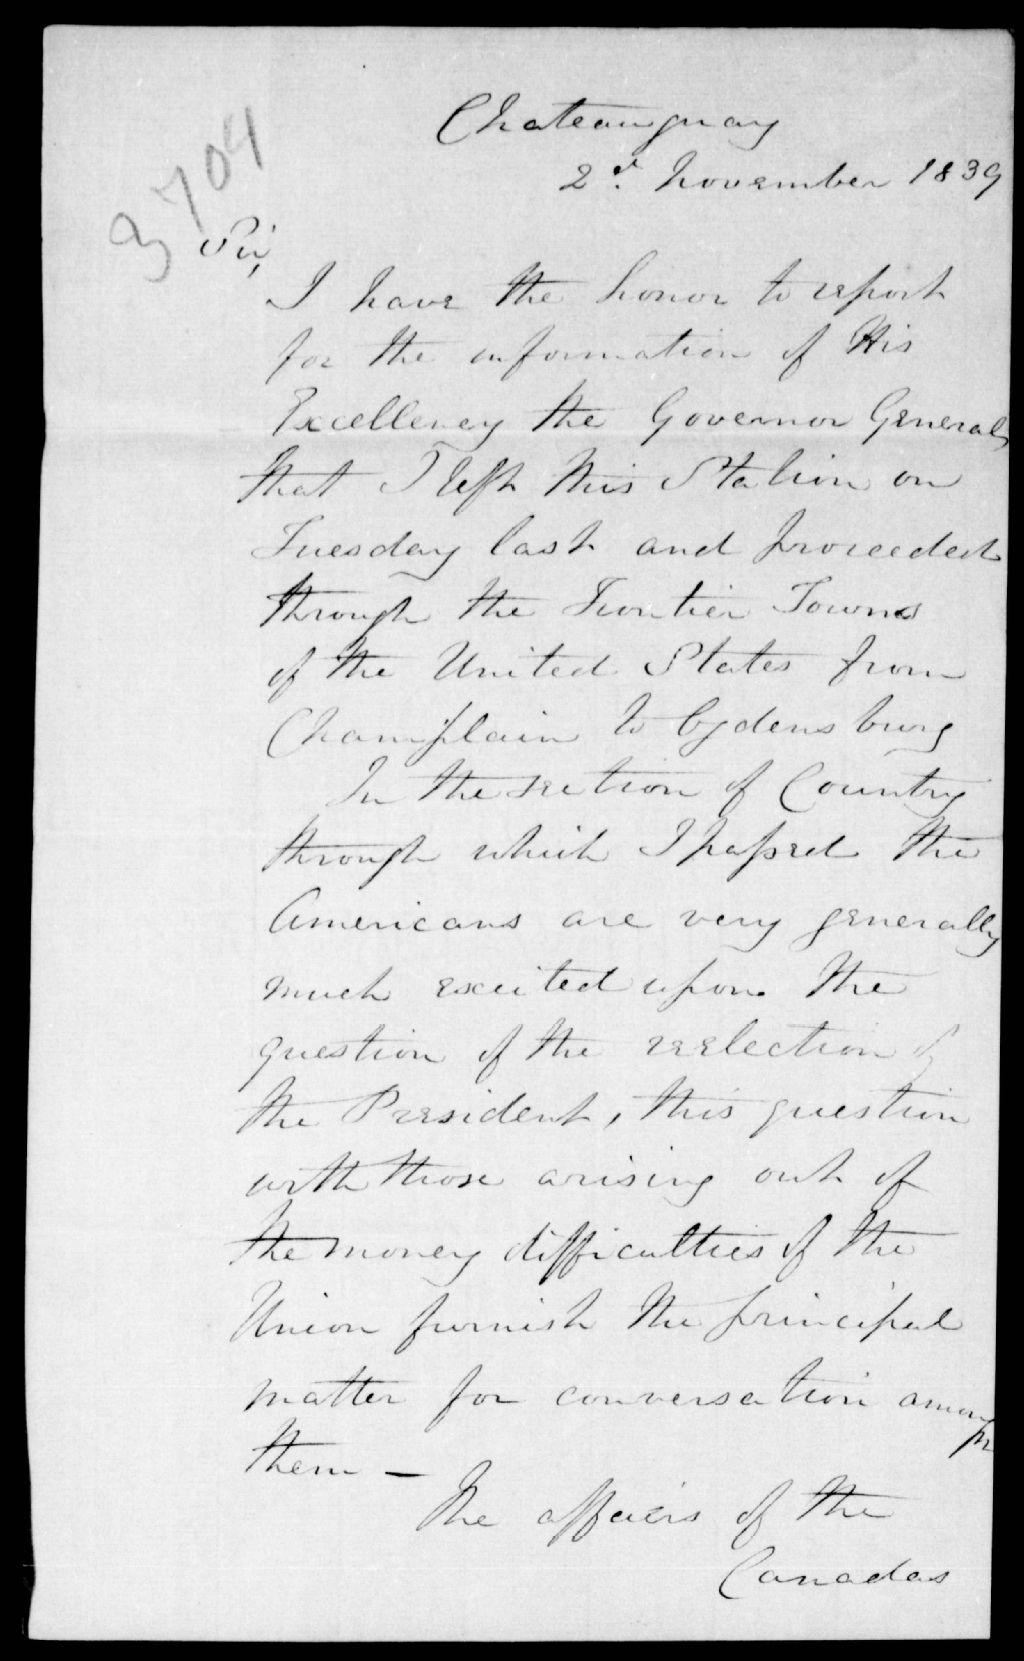 Chateauguay
2d. November 1839
3704
Sir,
I have the honor to report
for the information of His
Excellency the Governor General,
that I left this Station on
Tuesday last and proceeded
through the Frontier Towns
of the United States from
Champlain to Ogdensburg
In the section of Country
through which I passed the
Americans are very generally
much excited upon the
question of the reelection of
the President, this question
with those arising out of
the money difficulties of the
Union furnish the principal
matter for conversation among
them —
The affairs of the
Canadas